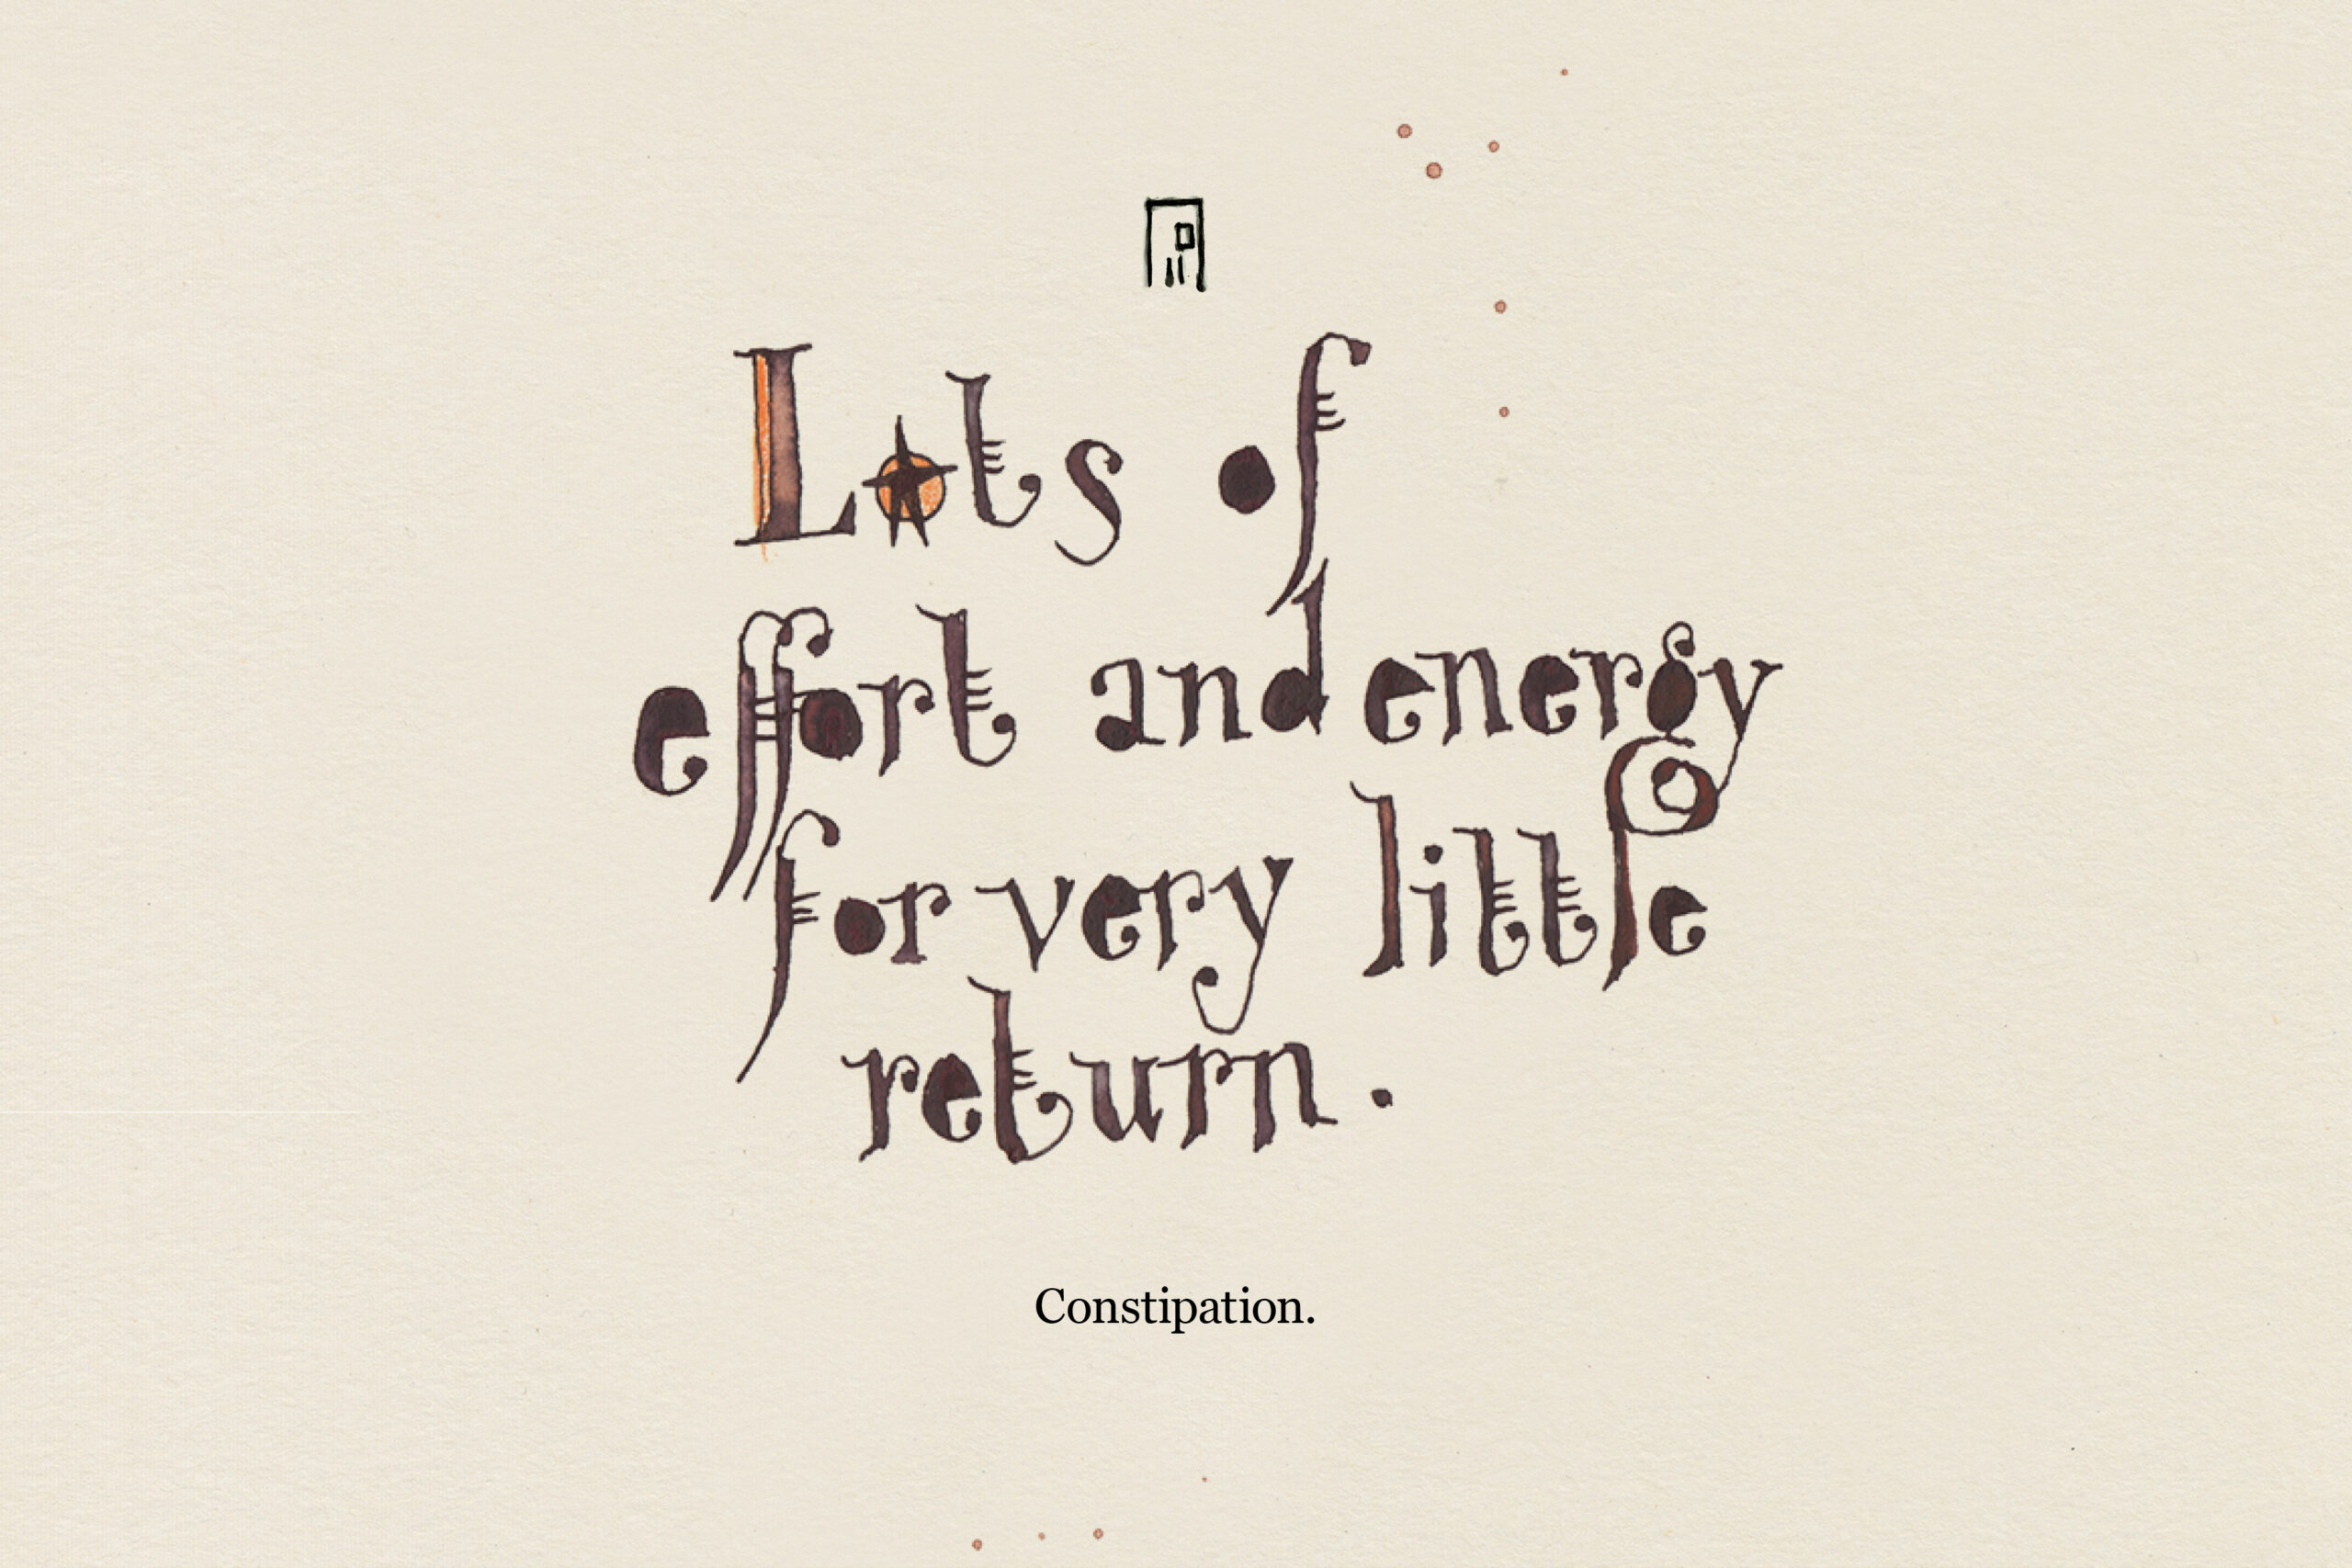 Lots of
effort and energy
for very little
return.
Constipation.